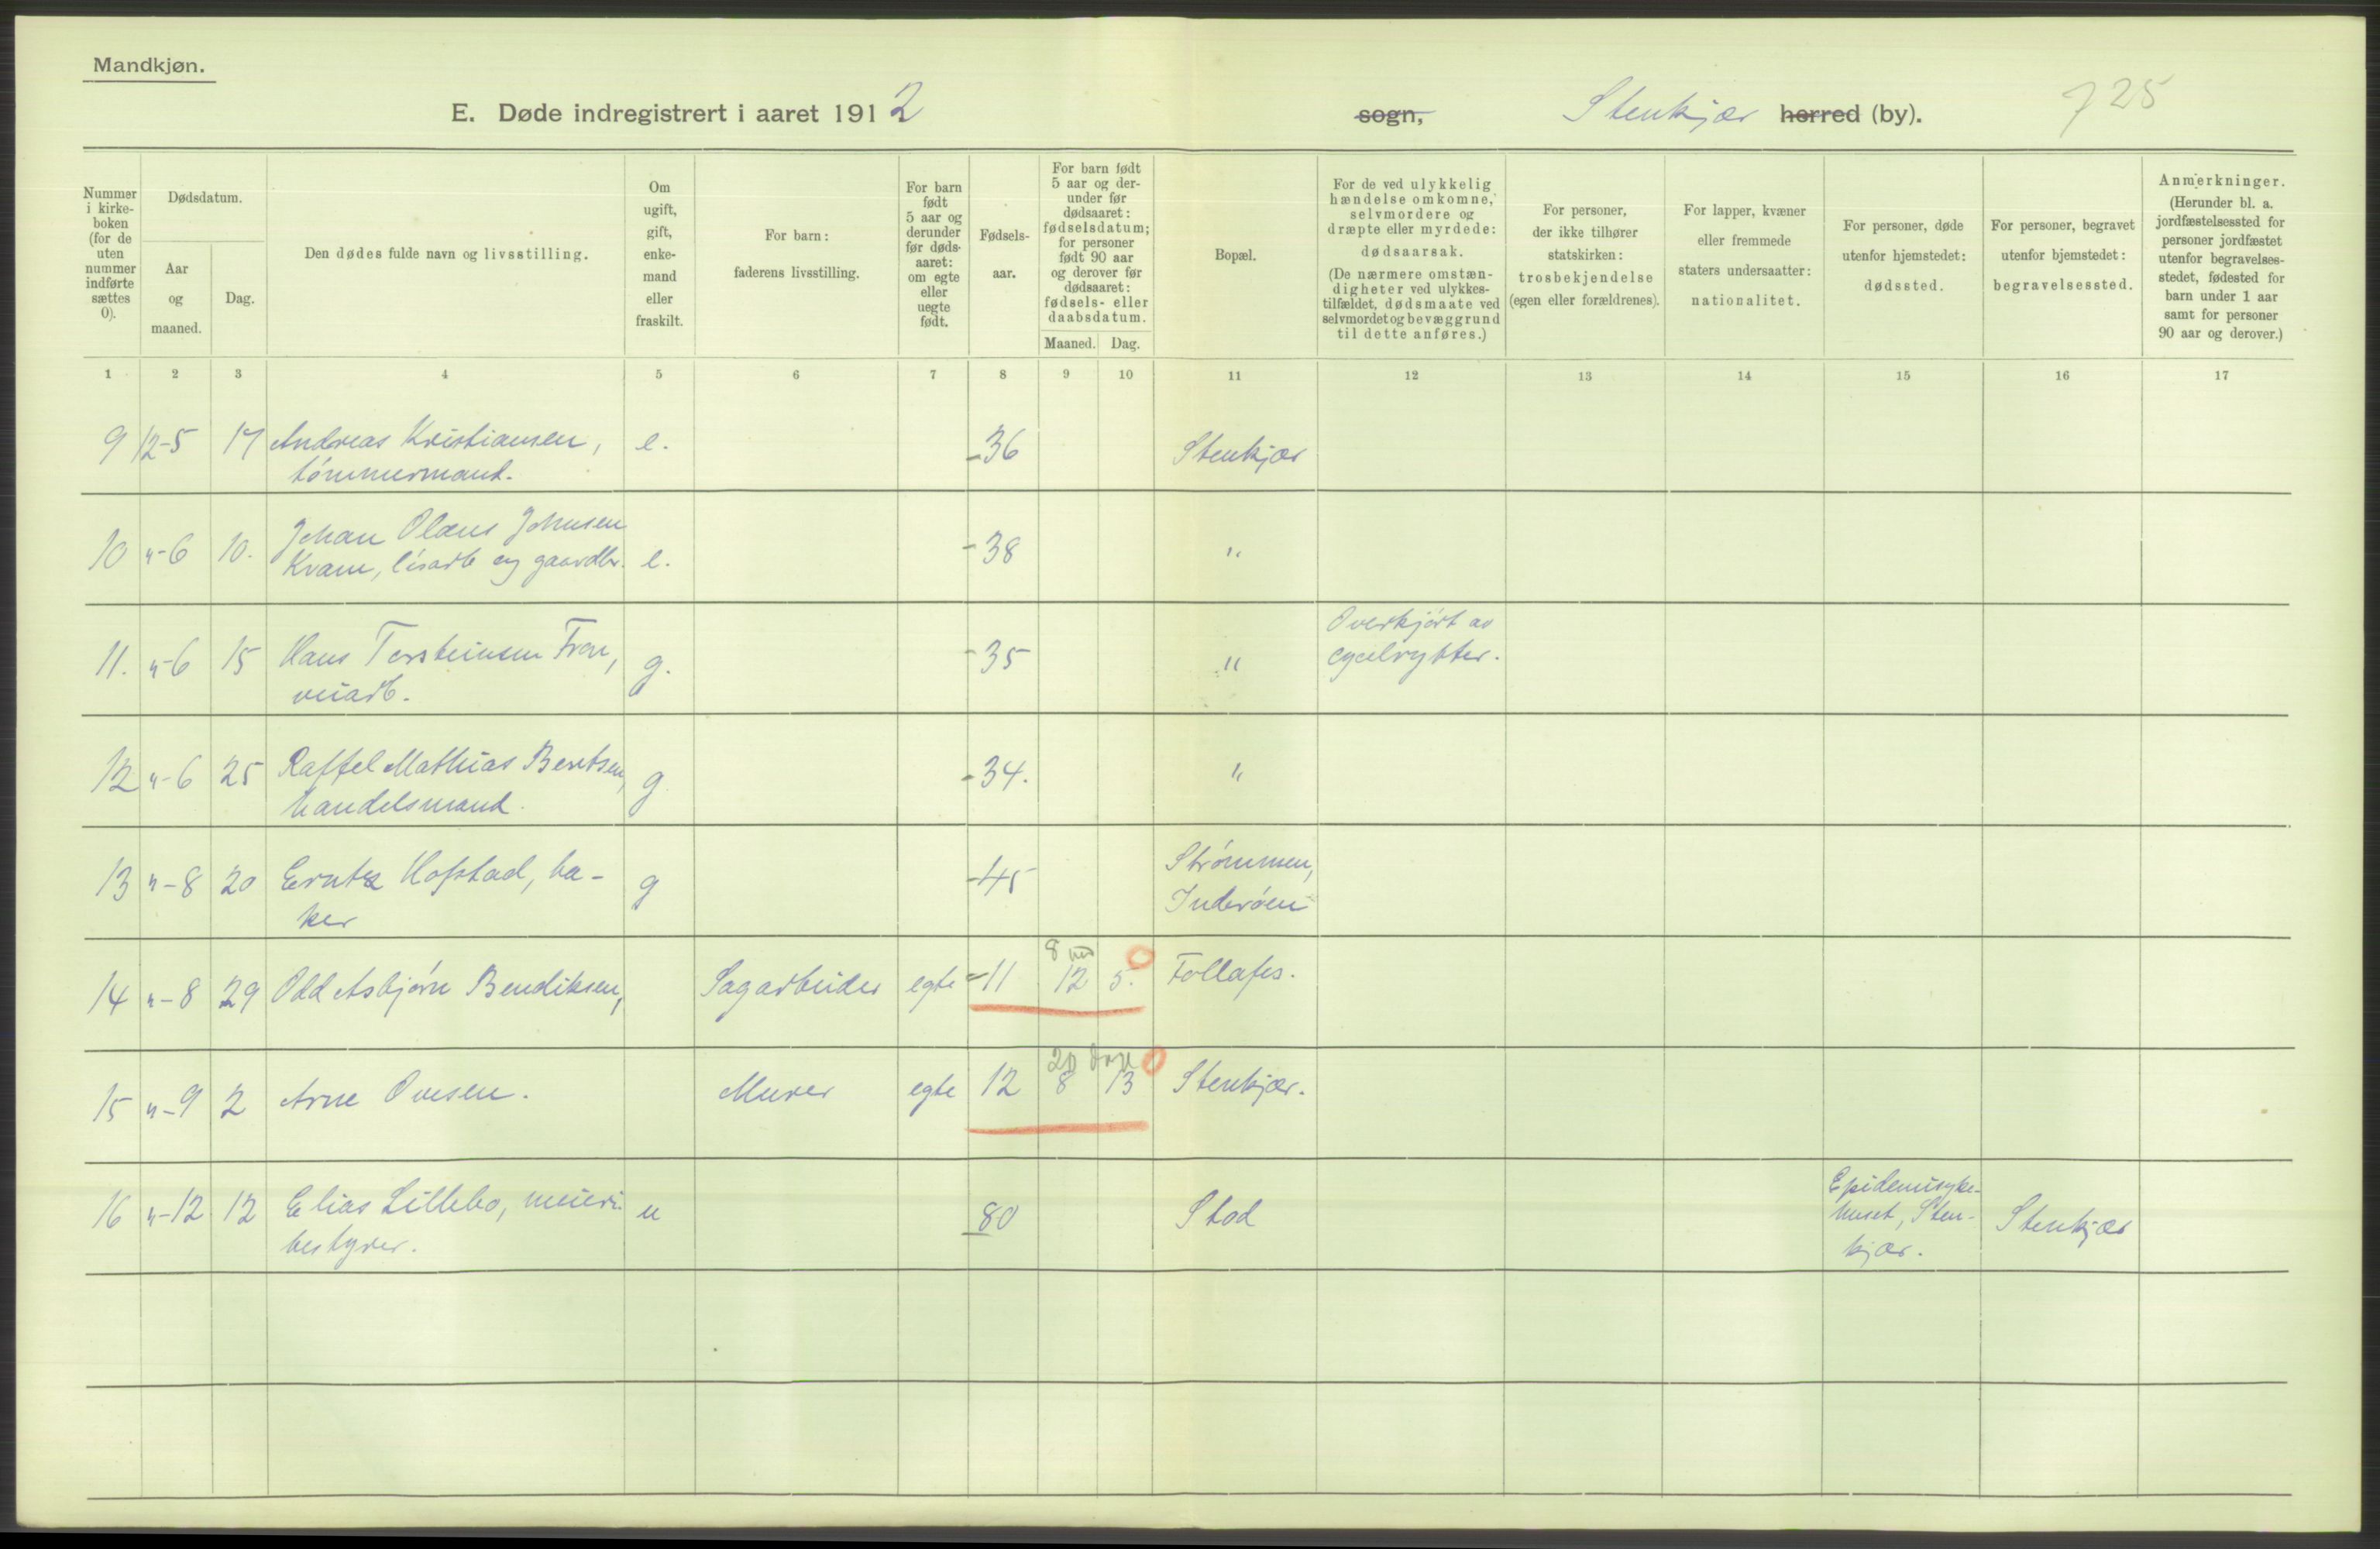 Mandkjøn.
E. Døde indregistrert i aaret 1912
sogn, Stenkjær herred (by). 725
Nummer i kirkeboken (for de uten nummer indførte sættes 0).
Dødsdatum.
Aar og maaned.
Dag.
Den dødes fulde navn og livsstilling.
Om ugift, gift, enkemand eller fraskilt.
For barn: faderens livsstilling.
For barn født 5 aar og derunder før dødsaaret: om egte eller uegte født.
Fødselsaar.
For barn født 5 aar og derunder før dødsaaret: fødselsdatum; for personer født 90 aar og derover før dødsaaret: fødsels- eller daabsdatum.
Maaned. Dag.
Bopæl.
For de ved ulykkelig hændelse omkomne, selvmordere og dræpte eller myrdede: dødsaarsak. (De nærmere omstændigheter ved ulykkestilfældet, dødsmaate ved selvmordet og bevæggrund til dette anføres.)
For personer, der ikke tilhører statskirken: trosbekjendelse (egen eller forældrenes).
For lapper, kvæner eller fremmede staters undersaatter: nationalitet.
For personer, døde utenfor hjemstedet: dødssted.
For personer, begravet utenfor hjemstedet: begravelsessted.
Anmerkninger. (Herunder bl. a. jordfæstelsessted for personer jordfæstet utenfor begravelsesstedet, fødested for barn under 1 aar samt for personer 90 aar og derover.)
1 2 3 4 5 6 7 8 9 10 11 12 13 14 15 16 17
9 12-5 17 Andreas Kristiansen, e. -36 Stenkjær
tømmermand.
10 "-6 10. Johan Olaus Johnsen
Kvam, og gaardbr. e. -38 "
11. "-6 15 Hans Torsteinsen g. -35 " Overkjørt av
veiarb. cyclrytter.
12 "-6 25 Raffel Mathias Bentsen, g -34. "
handelsmand.
13 "-8 20 Hofstad, ba- g -45 Strømmen,
ker Inderøen
8 md 0
14 "-8 29 Odd Asbjørn Bendiksen, Sagarbeider egte -11 12 5. Follafos.
20 0
15 "-9 2 Arne Ovesen. Murer egte 12 8 13 Stenkjær.
16 "-12 12 Elias Lillebo, meieri- u 80 Stod Epidemisyke-
bestyrer. huset, Sten- Stenkjær
kjær.